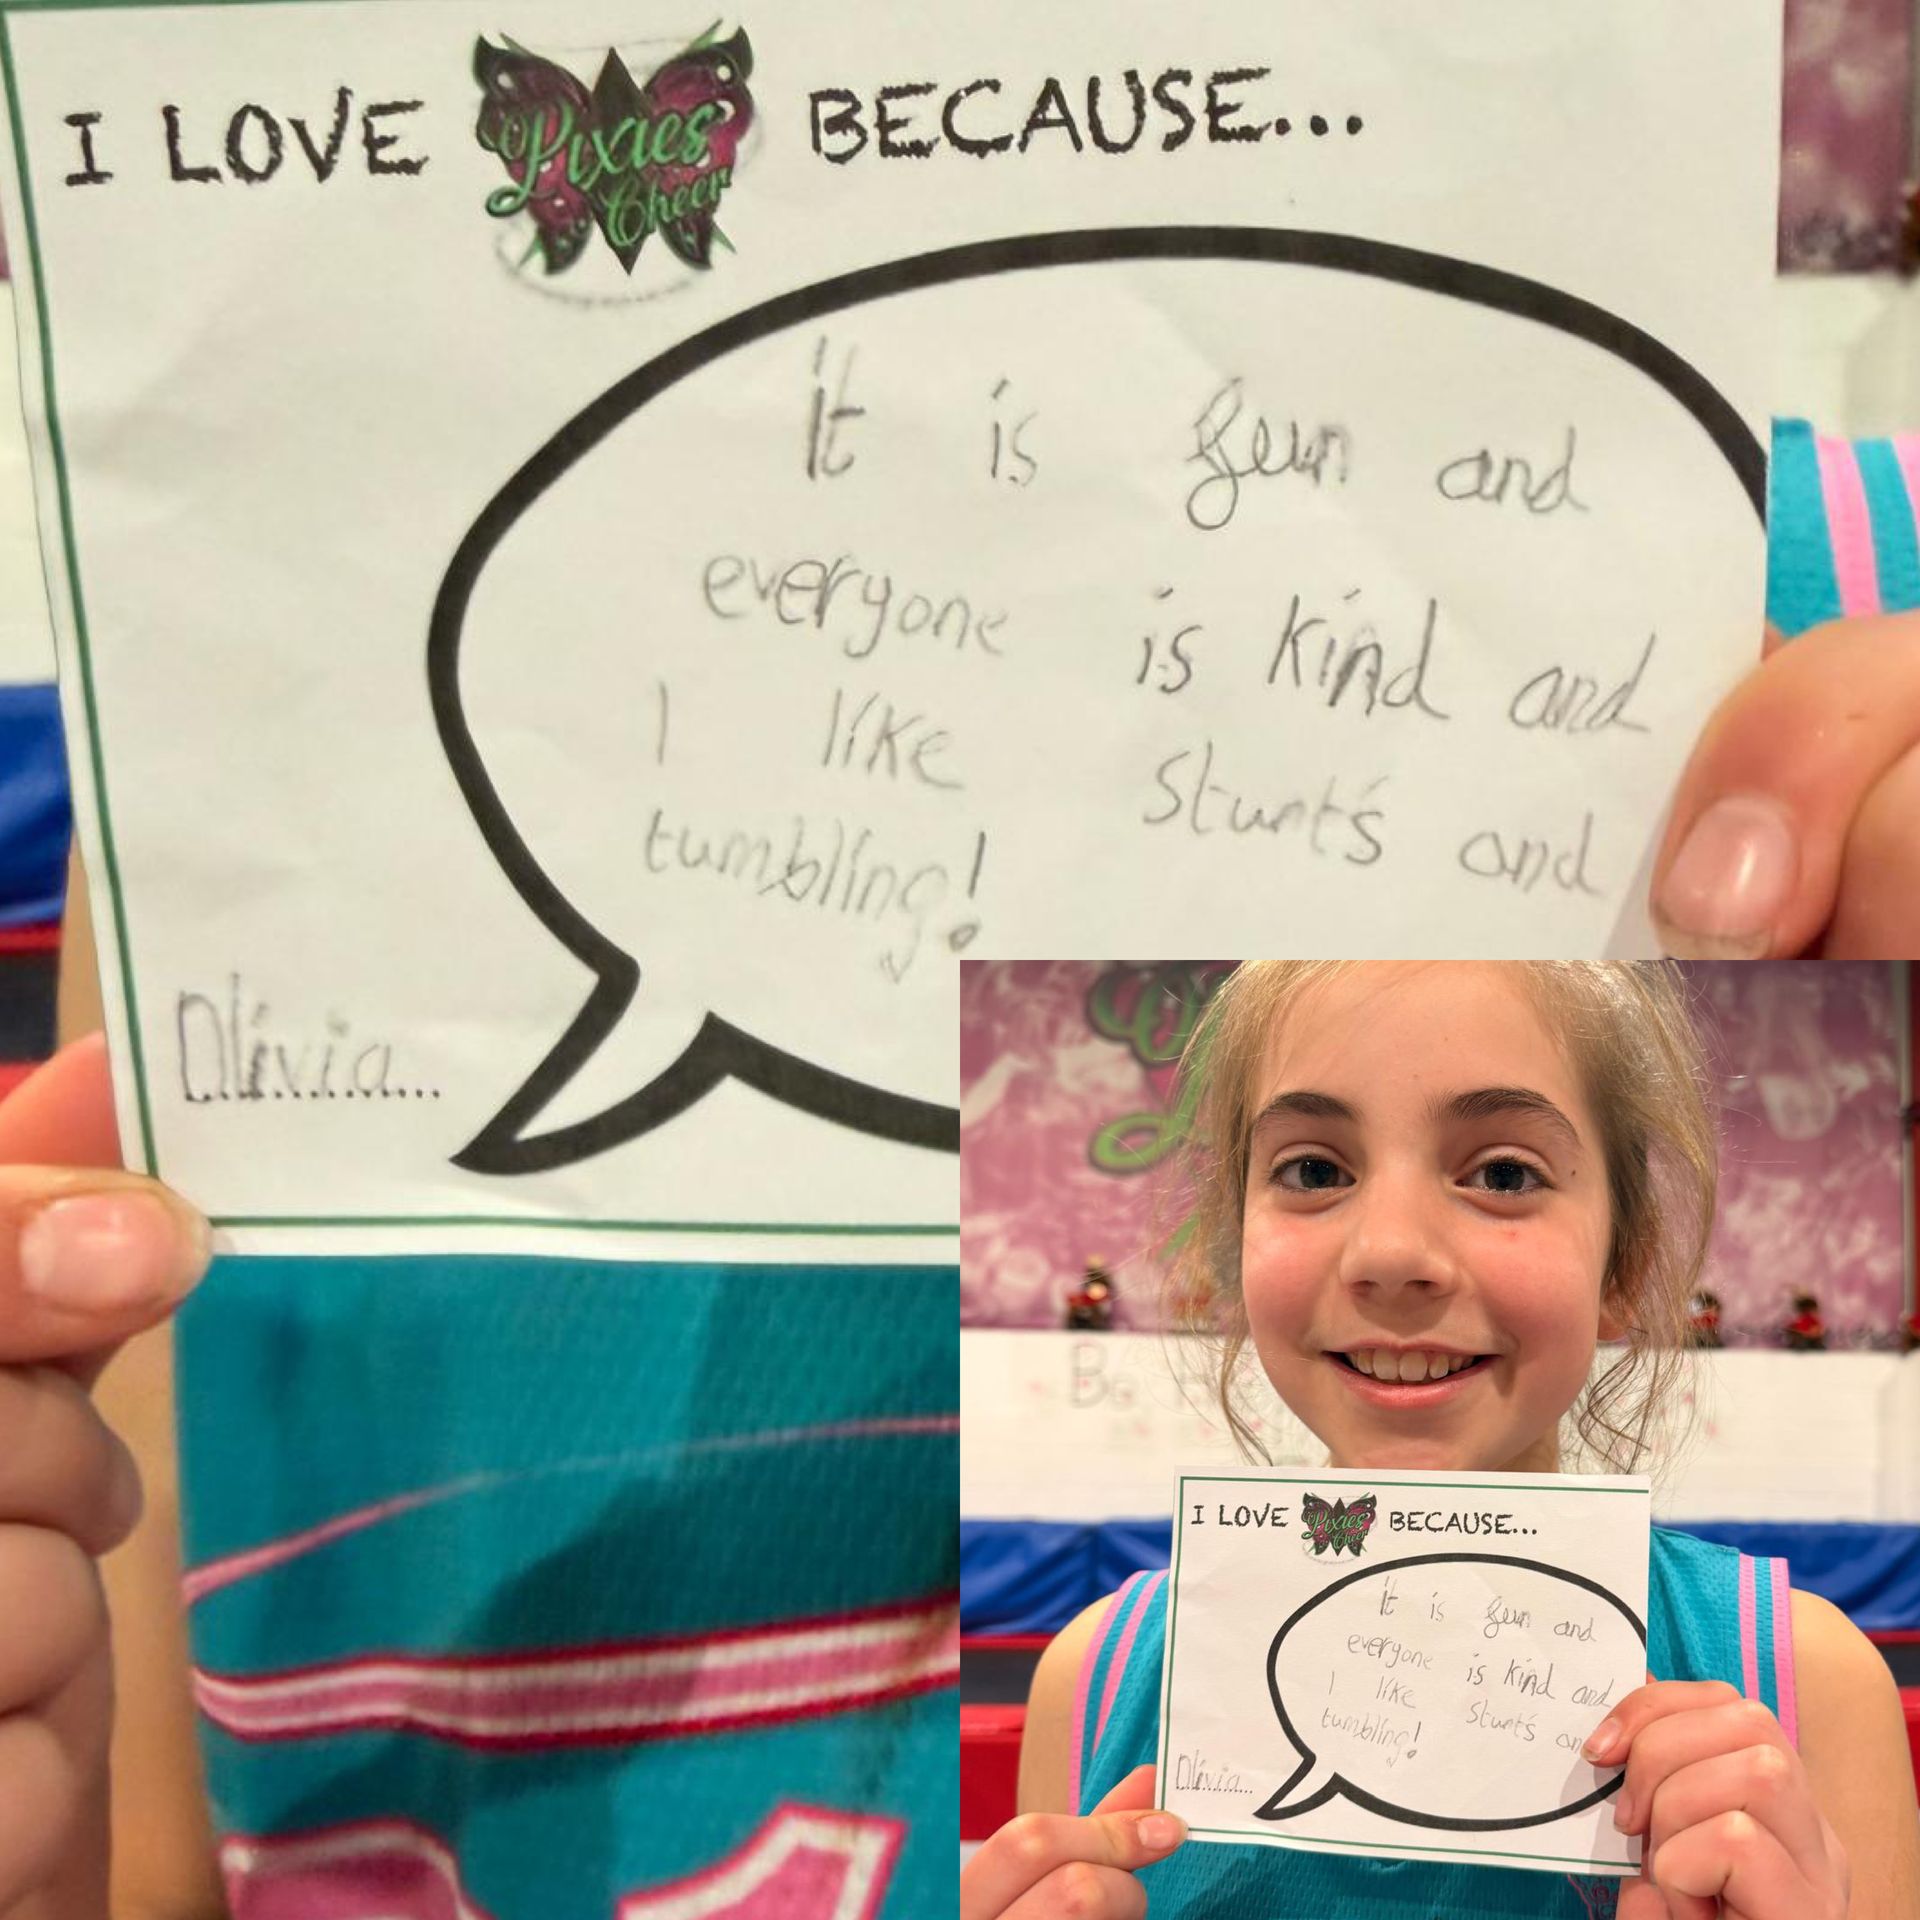 I LOVE Pixies Cheer BECAUSE...
It is fun and
everyone is kind and
I like stunts and
tumbling!
Olivia
I LOVE Pixies Cheer BECAUSE...
It is fun and
everyone is kind and
I like stunts an
tumbling!
Olivia